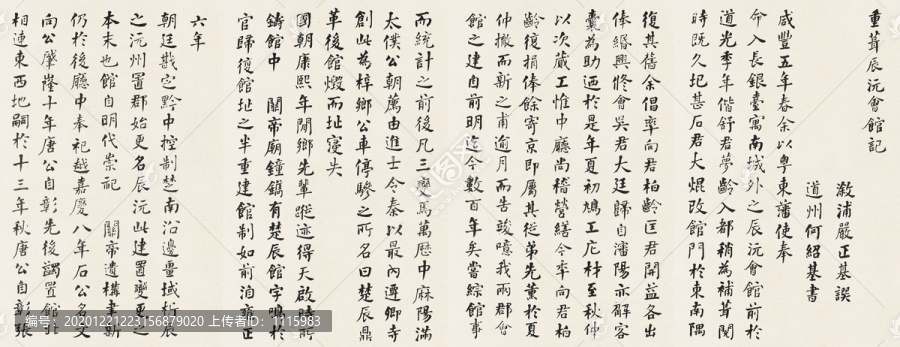 重葺辰沅會館記
溆浦嚴正基譔
道州何紹基書
咸豐五年春余以粤東藩使奉
命入長銀臺寓南城外之辰沅會館前於
道光季年偕舒君夢齡入都稍為補葺閱
時既久圮甚石君大焜改館門於東南隅
復其舊余倡率向君柏齡匡君開益各出
俸緡興修會吳君大廷歸自瀋陽亦解客
囊為助迺於是年夏初鳩工庀材至秋仲
以次蕆工惟中廳尚稽營繕今年向君柏
齡復捐俸餘寄京即屬其從弟先薰於夏
仲撤而新之甫逾月而告竣噫我兩郡會
館之建自前明迄今數百年矣嘗綜館事
而統計之前後凡三變焉萬歷中麻陽滿
太僕公朝薦由進士令秦以最內遷卿寺
創此為梓鄉公車停驂之所名曰楚辰鼎
革後館燬而址寖失
國朝康熙年間鄉先輩蹤迹得天啟時所
鑄館中 關帝廟鐘鐫有楚辰館字鳴於
官歸復館址之半重建館制如前洎雍正
六年
朝廷戡定黔中控制楚南沿邊疆域析辰
之沅州置郡始更名辰沅此建置變更之
本末也館自明代崇祀 關帝遺構聿新
仍於後廳中奉祀越嘉慶八年石公名文
向公肇隆十年唐公自彰先後蠲置館引
相連東西地嗣於十三年秋唐公自彰張
编号:20201221223156879020 上传者ID:1115983